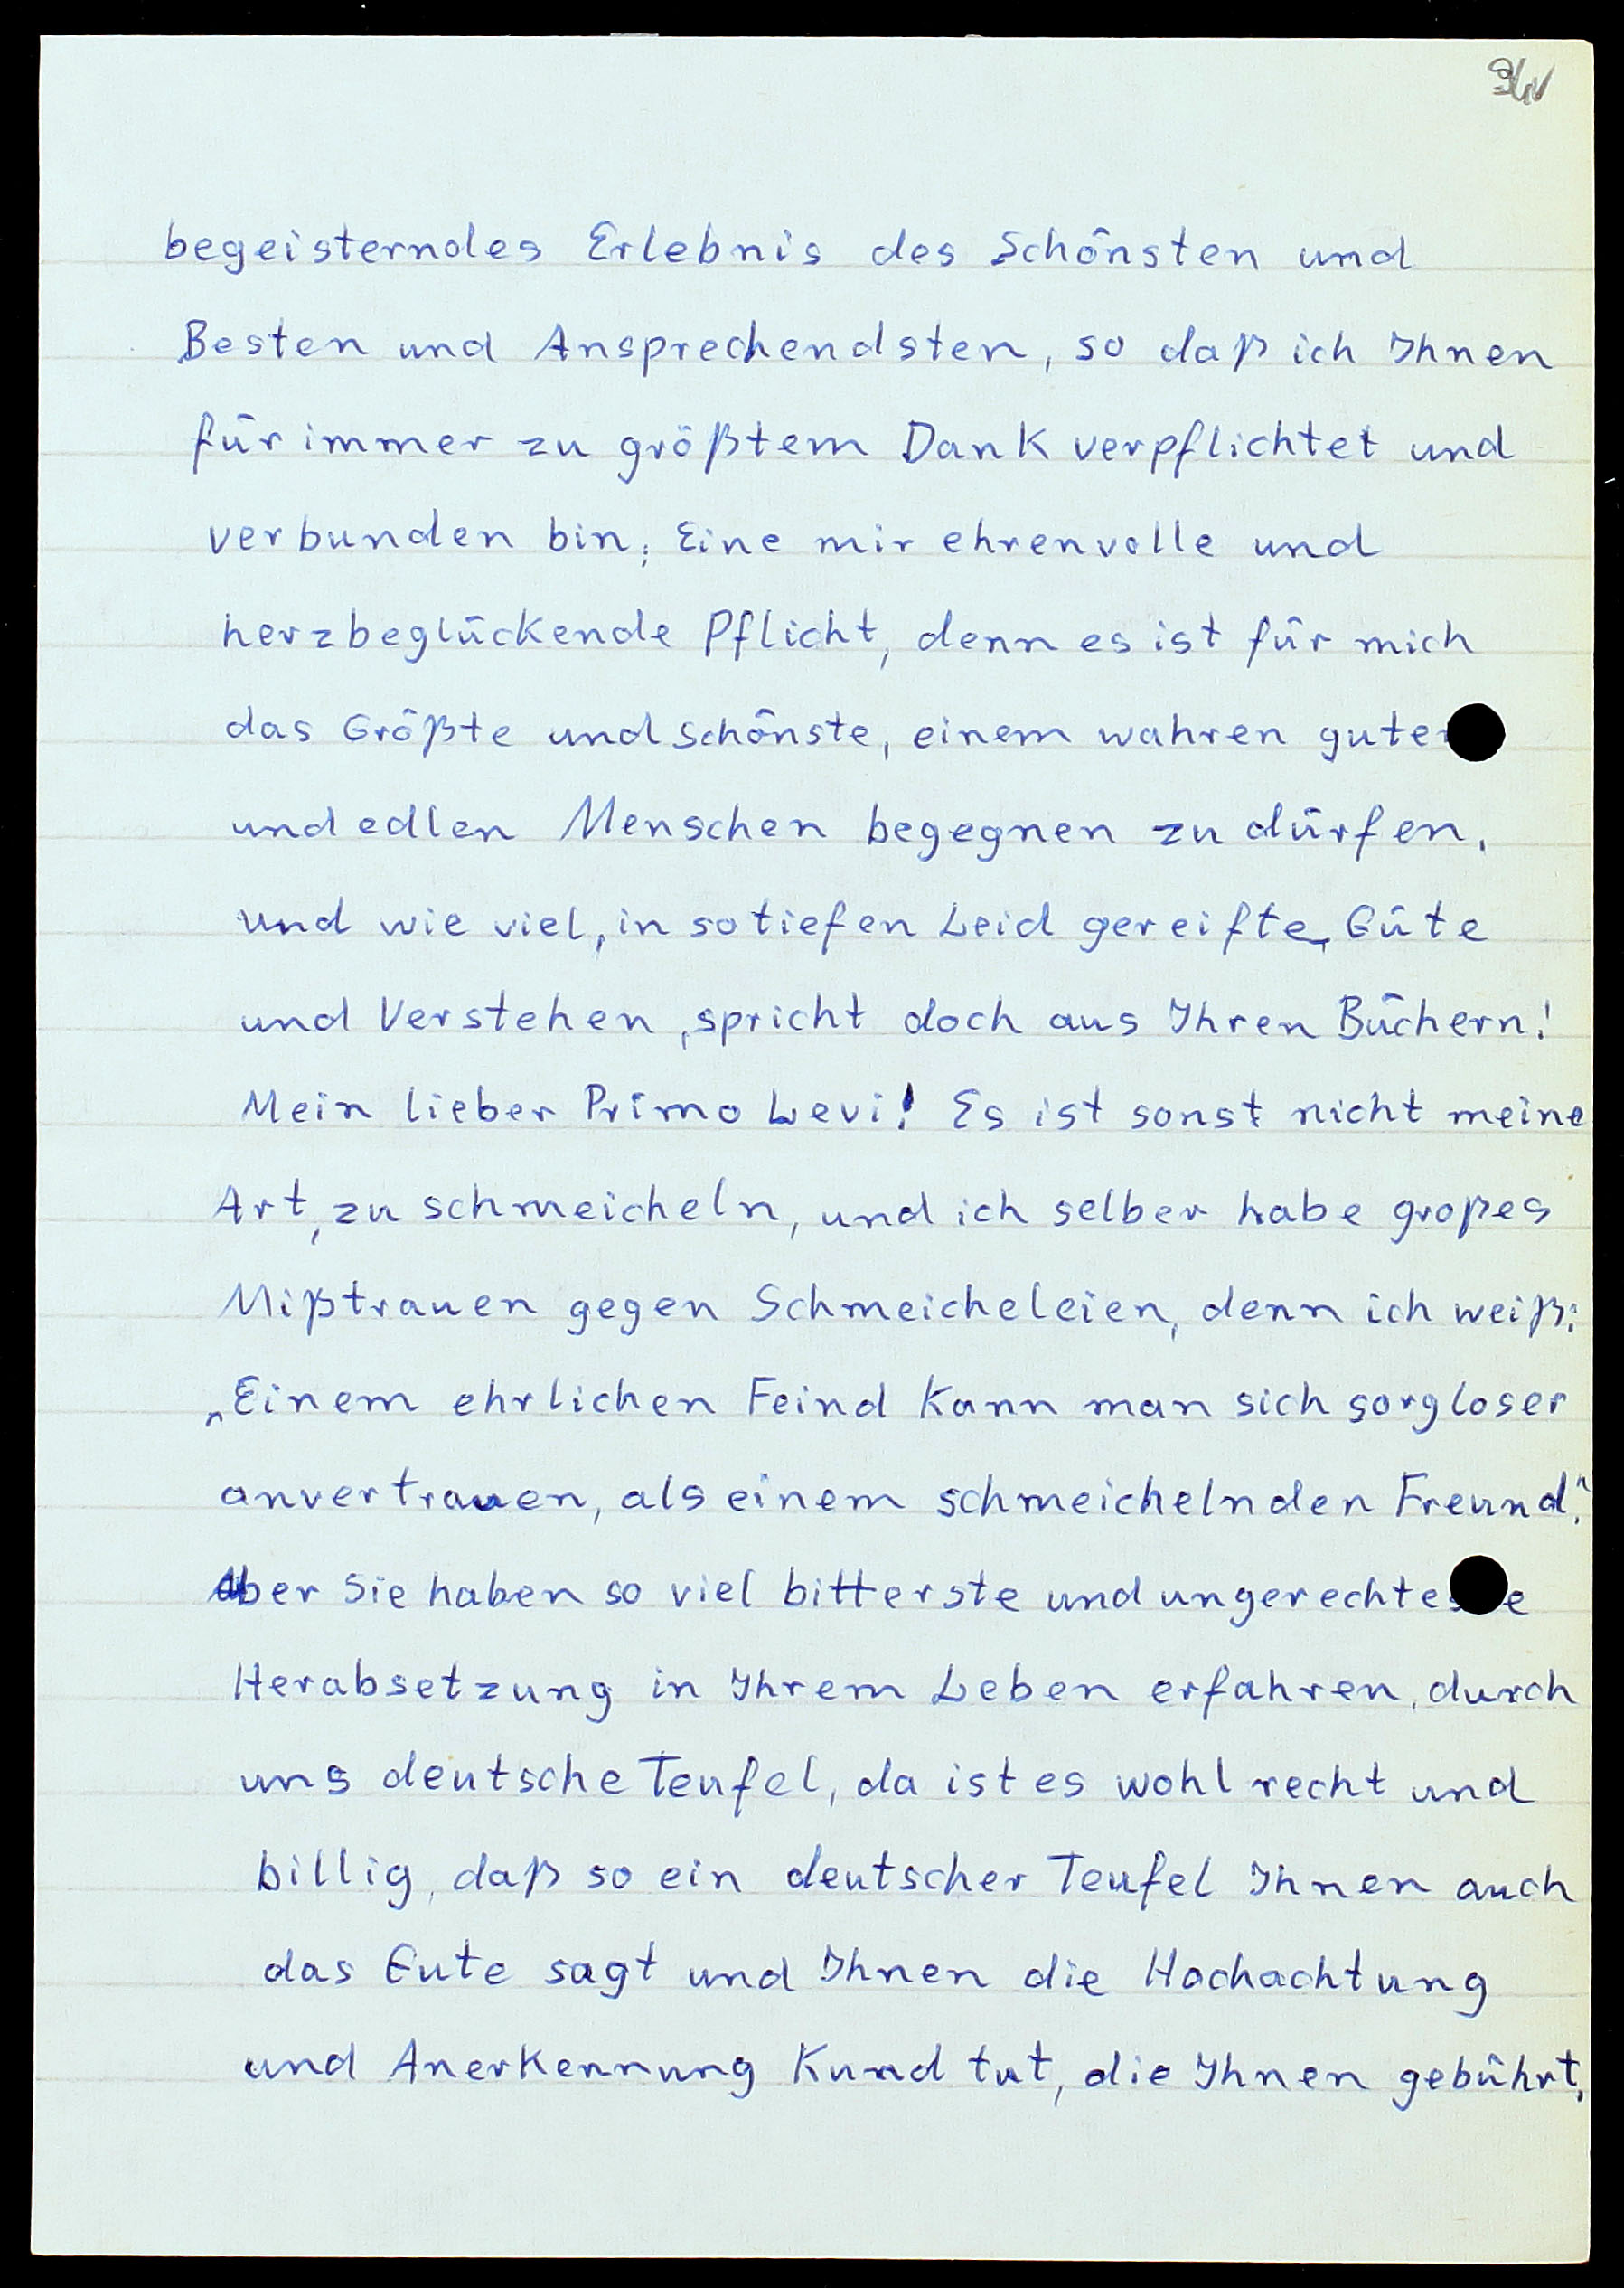 begeisterndes Erlebnis des Schönsten und
Besten und Ansprechendsten, so daß ich Ihnen
für immer zu größtem Dank verpflichtet und
verbunden bin; Eine mir ehrenvolle und
herzbeglückende Pflicht, denn es ist für mich
das Größte und Schönste, einem wahren guten
und edlen Menschen begegnen zu dürfen.
Und wie viel, in so tiefen Leid gereifte, Güte
und Verstehen, spricht doch aus Ihren Büchern!
Mein lieber Primo Levi! Es ist sonst nicht meine
Art, zu schmeicheln, und ich selber habe großes
Mißtrauen gegen Schmeicheleien, denn ich weiß:
„Einem ehrlichen Feind kann man sich sorgloser
anvertrauen, als einem schmeichelnden Freund."
Aber Sie haben so viel bitterste und ungerechteste
Herabsetzung in Ihrem Leben erfahren, durch
uns deutsche Teufel, da ist es wohl recht und
billig, daß so ein deutscher Teufel Ihnen auch
das Gute sagt und Ihnen die Hochachtung
und Anerkennung Kund tut, die Ihnen gebührt,